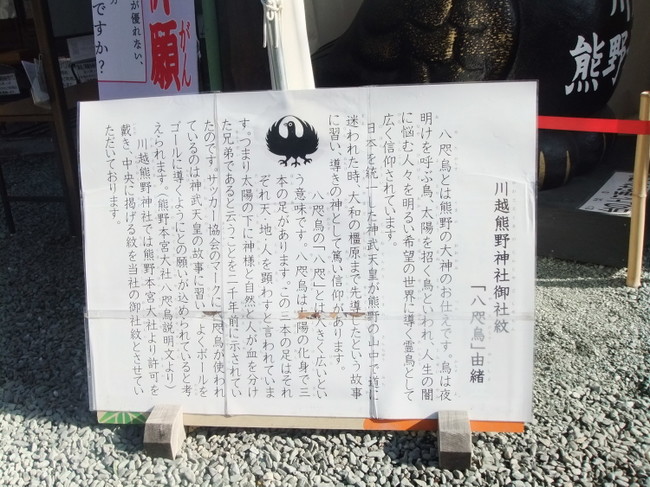 川越熊野神社御社紋
「八咫烏」由緒
八咫烏とは熊野の大神のお仕えです。烏は夜
明けを呼ぶ鳥、太陽を招く鳥といわれ、人生の闇
に悩む人々を明るい希望の世界に導く霊鳥として
広く信仰されています。
日本を統一した神武天皇が熊野の山中で道に
迷われた時、大和の橿原まで先導したという故事
に習い、導きの神として篤い信仰があります。
八咫烏の「八咫」とは大きく広いとい
う意味です。八咫烏は太陽の化身で三
本の足があります。この三本の足はそれ
ぞれ天、地、人を顕わすと言われていま
す。つまり太陽の下に神様と自然と人が血を分け
た兄弟であると云うことを二千年前に示されてい
たのです。サッカー協会のマークに八咫烏が使われ
ているのは神武天皇の故事に習い、よくボールを
ゴールに導くようにとの願いが込められていると考
えられます。(熊野本宮大社八咫烏説明文より)
川越熊野神社では熊野本宮大社より許可を
戴き、中央に掲げる紋を当社の御社紋とさせてい
ただいております。
が優れない、
ですか?
祈願
がん
川
熊野